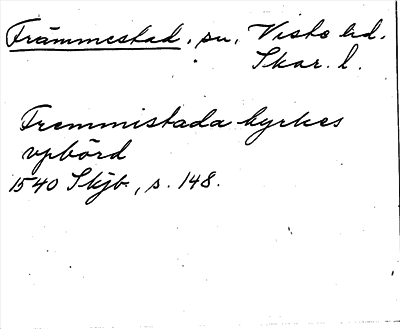 Främmestad, sn, Viste hd.
Skar. l.
Fremmistada kyrkes
vpbörd
1540 Skjb, s. 148.